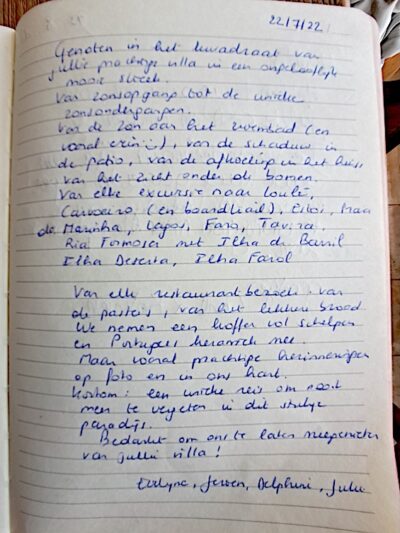 22/7/22
Genoten in het kwadraat van
jullie prachtige villa in een ongelooflijk
mooie streek.
Van zonsopgang tot de unieke
zonsondergangen.
Van de zon aan het zwembad (en
vooral erin :)), van de schaduw in
de patio, van de afkoeling in het huis,
van het zicht onder de bomen.
Van elke excursie naar Loulé,
Carvoeiro (en boardtrail), Estoi, Praia
da Marinha, Lagos, Faro, Tavira,
Ria Formosa met Ilha do Barril
Ilha Deserta, Ilha Farol
Van elk restaurantbezoek, van
de pasteis, van het lekkere brood.
We nemen een koffer vol schelpen
en Portugees keramiek mee.
Maar vooral prachtige herinneringen
op foto en in ons hart.
Kortom: een unieke reis om nooit
meer te vergeten in dit stukje
paradijs.
Bedankt om ons te laten meegenieten
van jullie villa!
Evelyne, Jeroen, Delphine, Julie